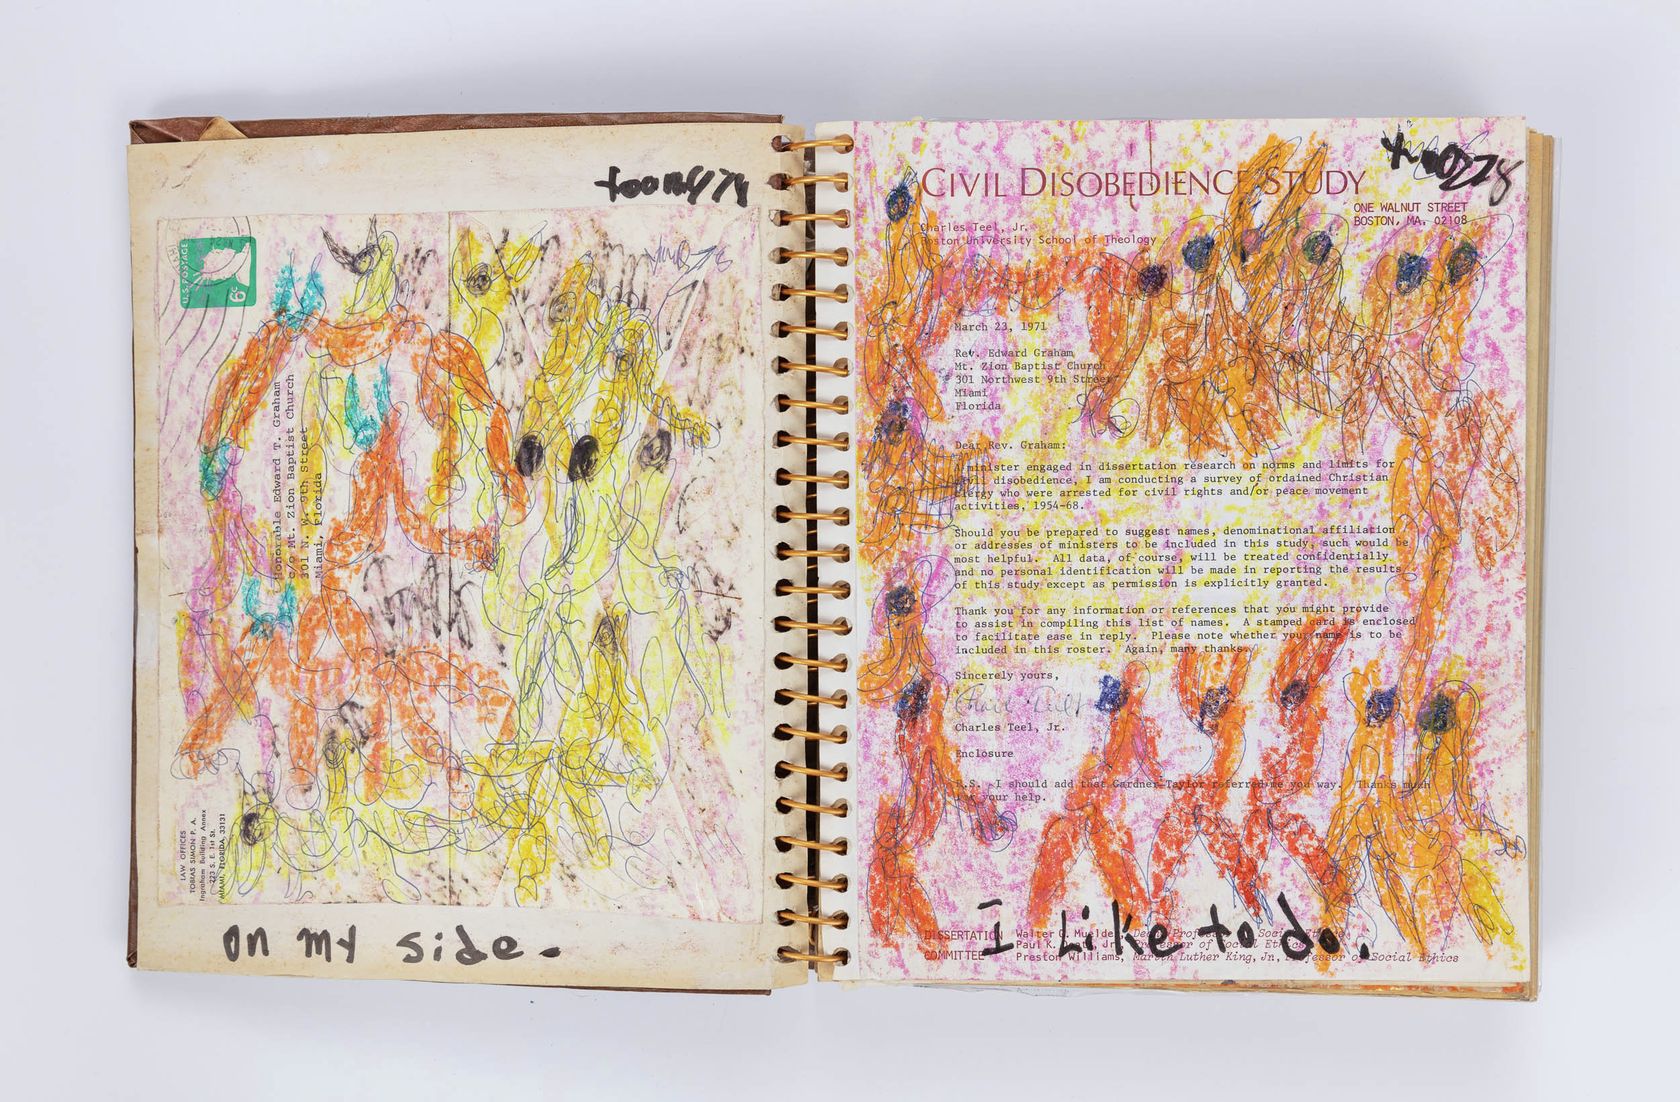 U.S. POSTAGE
6c
Honorable Edward T. Graham
c/o Mt. Zion Baptist Church
301 N. W. 9th Street
Miami, Florida
LAW OFFICES
TOBIAS SIMON P. A.
Ingraham Building Annex
223 S. E. 1st St.
MIAMI, FLORIDA 33131
on my side.
CIVIL DISOBEDIENCE STUDY
ONE WALNUT STREET
BOSTON, MA. 02108
Charles Teel, Jr.
Boston University School of Theology
March 23, 1971
Rev. Edward Graham
Mt. Zion Baptist Church
301 Northwest 9th Street
Miami
Florida
Dear Rev. Graham:
A minister engaged in dissertation research on norms and limits for
civil disobedience, I am conducting a survey of ordained Christian
clergy who were arrested for civil rights and/or peace movement
activities, 1954-68.
Should you be prepared to suggest names, denominational affiliation
or addresses of ministers to be included in this study, such would be
most helpful. All data, of course, will be treated confidentially
and no personal identification will be made in reporting the results
of this study except as permission is explicitly granted.
Thank you for any information or references that you might provide
to assist in compiling this list of names. A stamped card is enclosed
to facilitate ease in reply. Please note whether your name is to be
included in this roster. Again, many thanks.
Sincerely yours,
Charles Teel, Jr.
Enclosure
P.S. I should add that Gardner Taylor referred me you way. Thanks much
for your help.
I Like to do.
DISSERTATION
COMMITTEE
Walter G. Muelder, Dean, Professor of Social Ethics
Paul K. Deats, Jr, Professor of Social Ethics
Preston Williams, Martin Luther King, Jn, Professor of Social Ethics